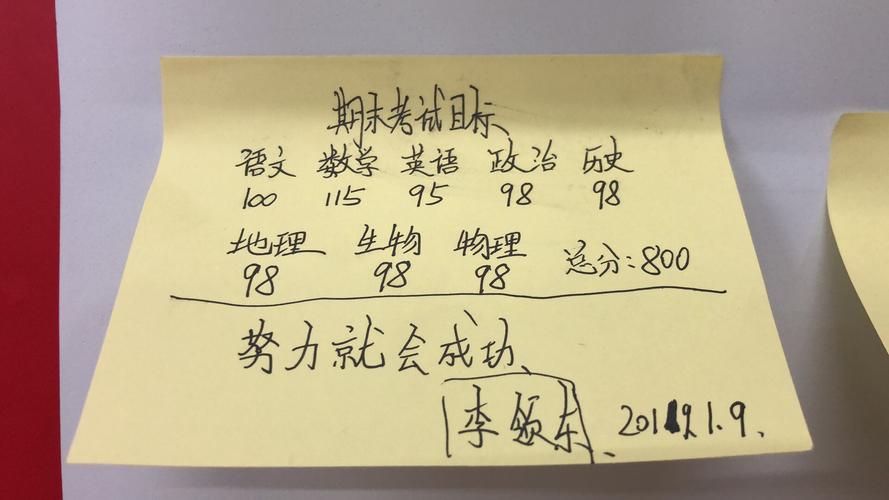 期末考试目标
语文 数学 英语 政治 历史
100 115 95 98 98
地理 生物 物理 总分:800
98 98 98
努力就会成功、
李颂东、2019.1.9.